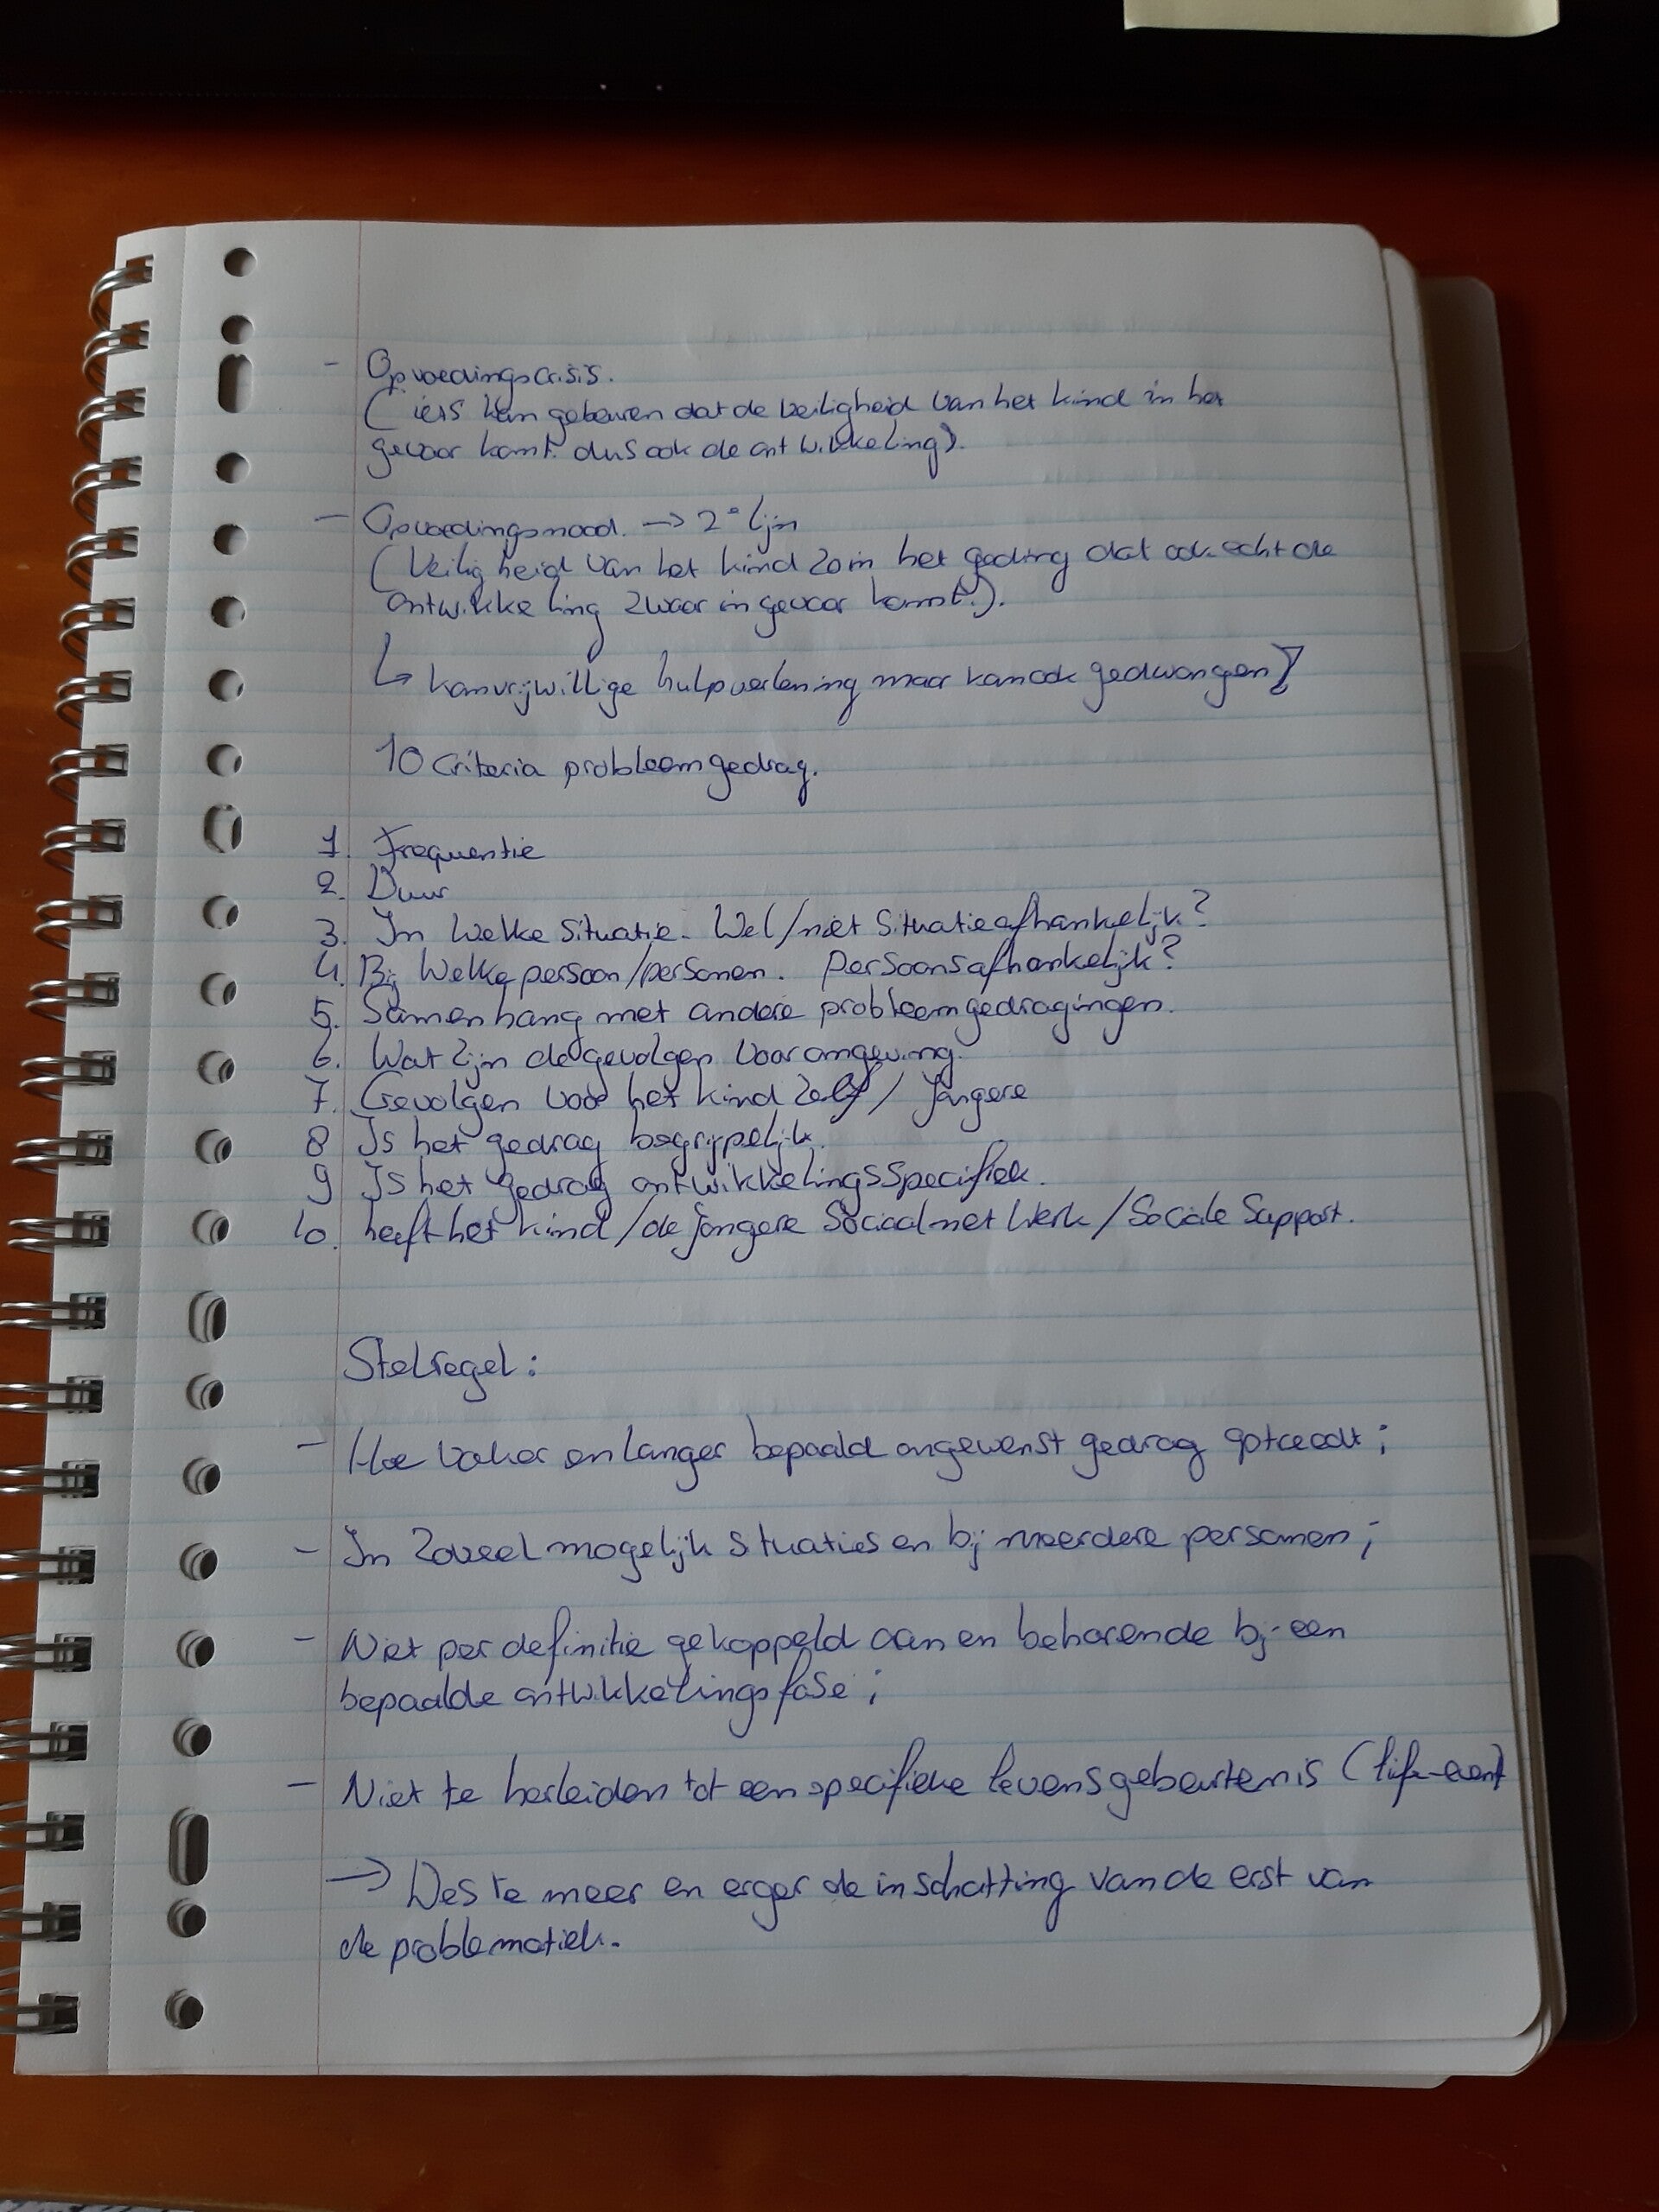 - Opvoedingscrisis.
(iets kan gebeuren dat de veiligheid van het kind in het
gevaar komt. dus ook de ontwikkeling).
- Opvoedingsnood. -> 2e lijn
(Veiligheid van het kind zo in het geding dat ook echt de
ontwikkeling zwaar in gevaar komt.).
↳ kan vrijwillige hulpverlening maar kan ook gedwongen!
10 Criteria probleemgedrag.
1. Frequentie
2. Duur
3. In welke situatie. Wel/niet Situatieafhankelijk?
4. Bij welke persoon/personen. Persoonsafhankelijk?
5. Samenhang met andere probleemgedragingen.
6. Wat zijn de gevolgen voor omgeving.
7. Gevolgen voor het kind zelf / Jongere
8 Is het gedrag begrijpelijk.
9 Is het gedrag ontwikkelingsspecifiek.
10. heeft het kind/de jongere Sociaal netwerk/Sociale Support.
Stelregel:
- Hoe vaker en langer bepaald ongewenst gedrag optreedt;
- In zoveel mogelijk situaties en bij meerdere personen;
- Niet per definitie gekoppeld aan en behorende bij een
bepaalde ontwikkelingsfase;
- Niet te herleiden tot een specifieke levensgebeurtenis (life-event)
-> Des te meer en erger de inschatting van de erst van
de problematiek.